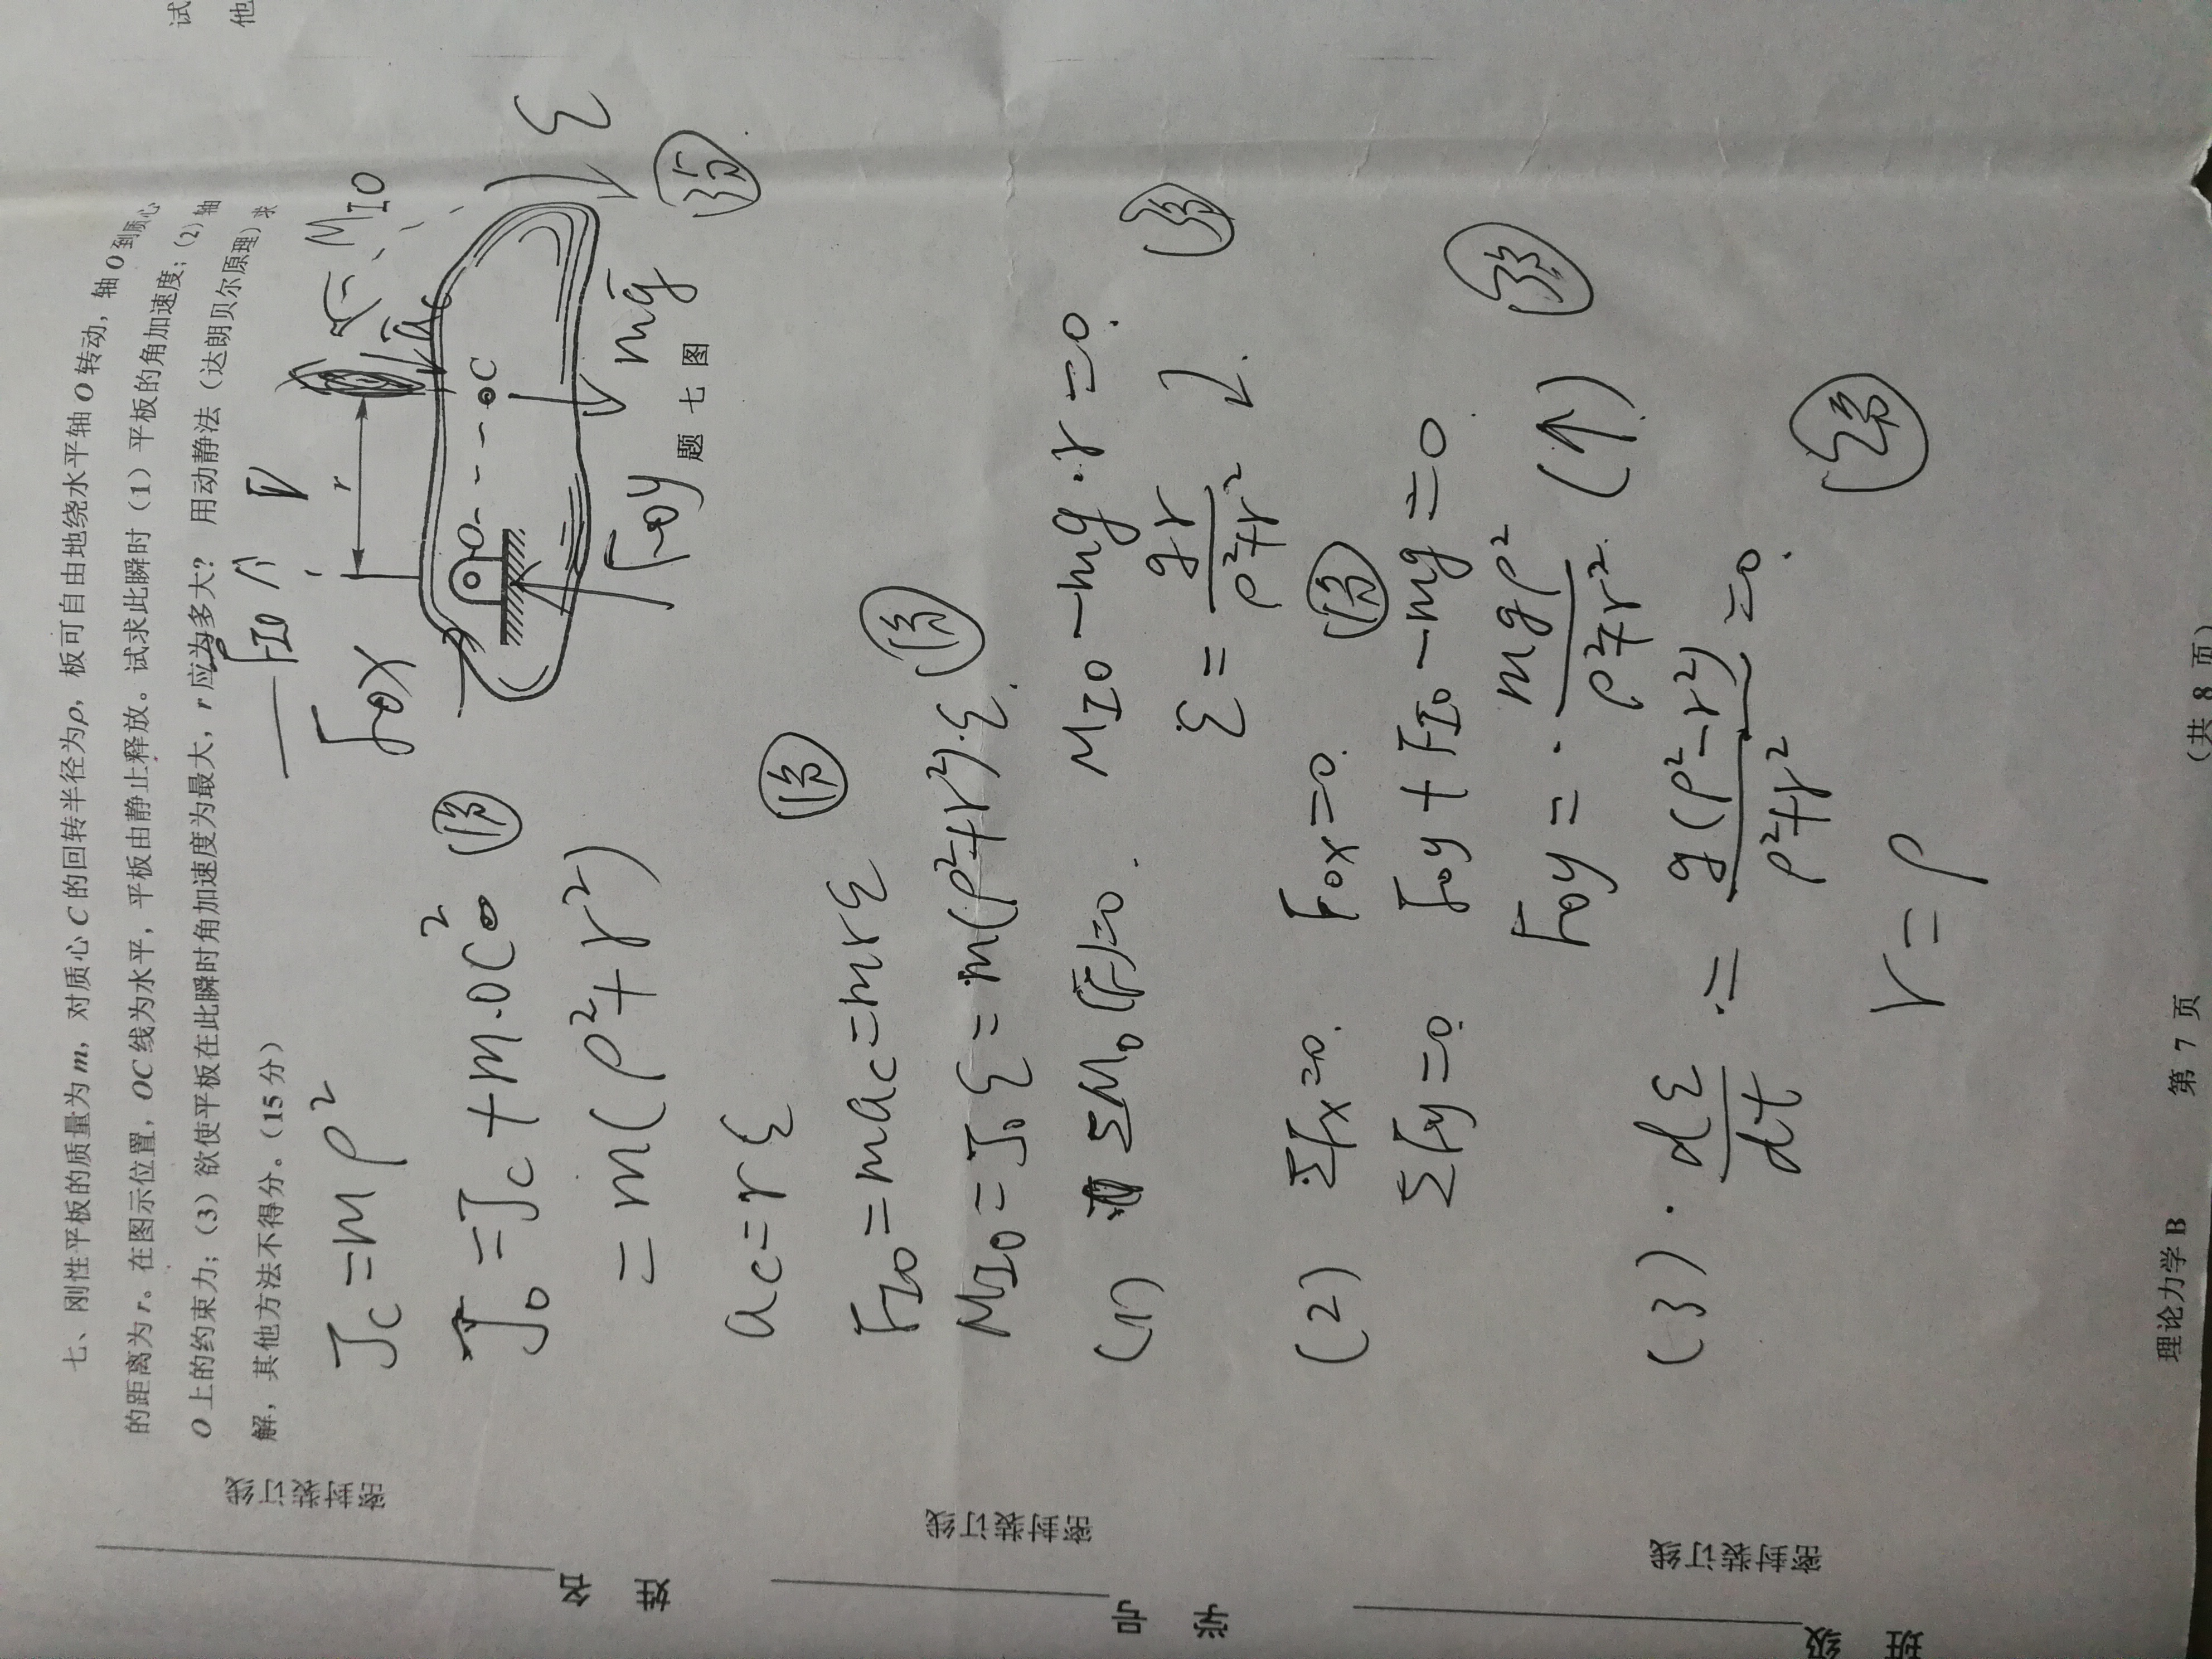 七、刚性平板的质量为m，对质心C的回转半径为ρ，板可自由地绕水平轴O转动，轴O到质心
的距离为r。在图示位置，OC线为水平，平板由静止释放。试求此瞬时（1）平板的角加速度；（2）轴
O上的约束力；（3）欲使平板在此瞬时角加速度为最大，r应为多大？用动静法（达朗贝尔原理）求
解，其他方法不得分。（15分）
试
他
F_IO
M_IO
F_OX
r
O
C
ε
mg
F_Oy
题七图
3分
J_C=mρ²
J_O=J_C+m·OC² 1分
=m(ρ²+r²)
a_C=rε
F_IO=ma_C=mrε 1分
M_IO=J_Oε=m(ρ²+r²)·ε 1分
(1) ΣM_O(F)=0. M_IO-mg·r=0. 3分
ε=gr/(ρ²+r²)
(2) ΣFx=0. F_OX=0. 1分
ΣFy=0. F_Oy+F_IO-mg=0
F_Oy=mgρ²/(ρ²+r²) (↑) 3分
(3) dε/dt=g(ρ²-r²)/(ρ²+r²)=0.
r=ρ 2分
理论力学B 第 7 页 （共 8 页）
密封装订线
密封装订线
密封装订线
姓名
学号
班级